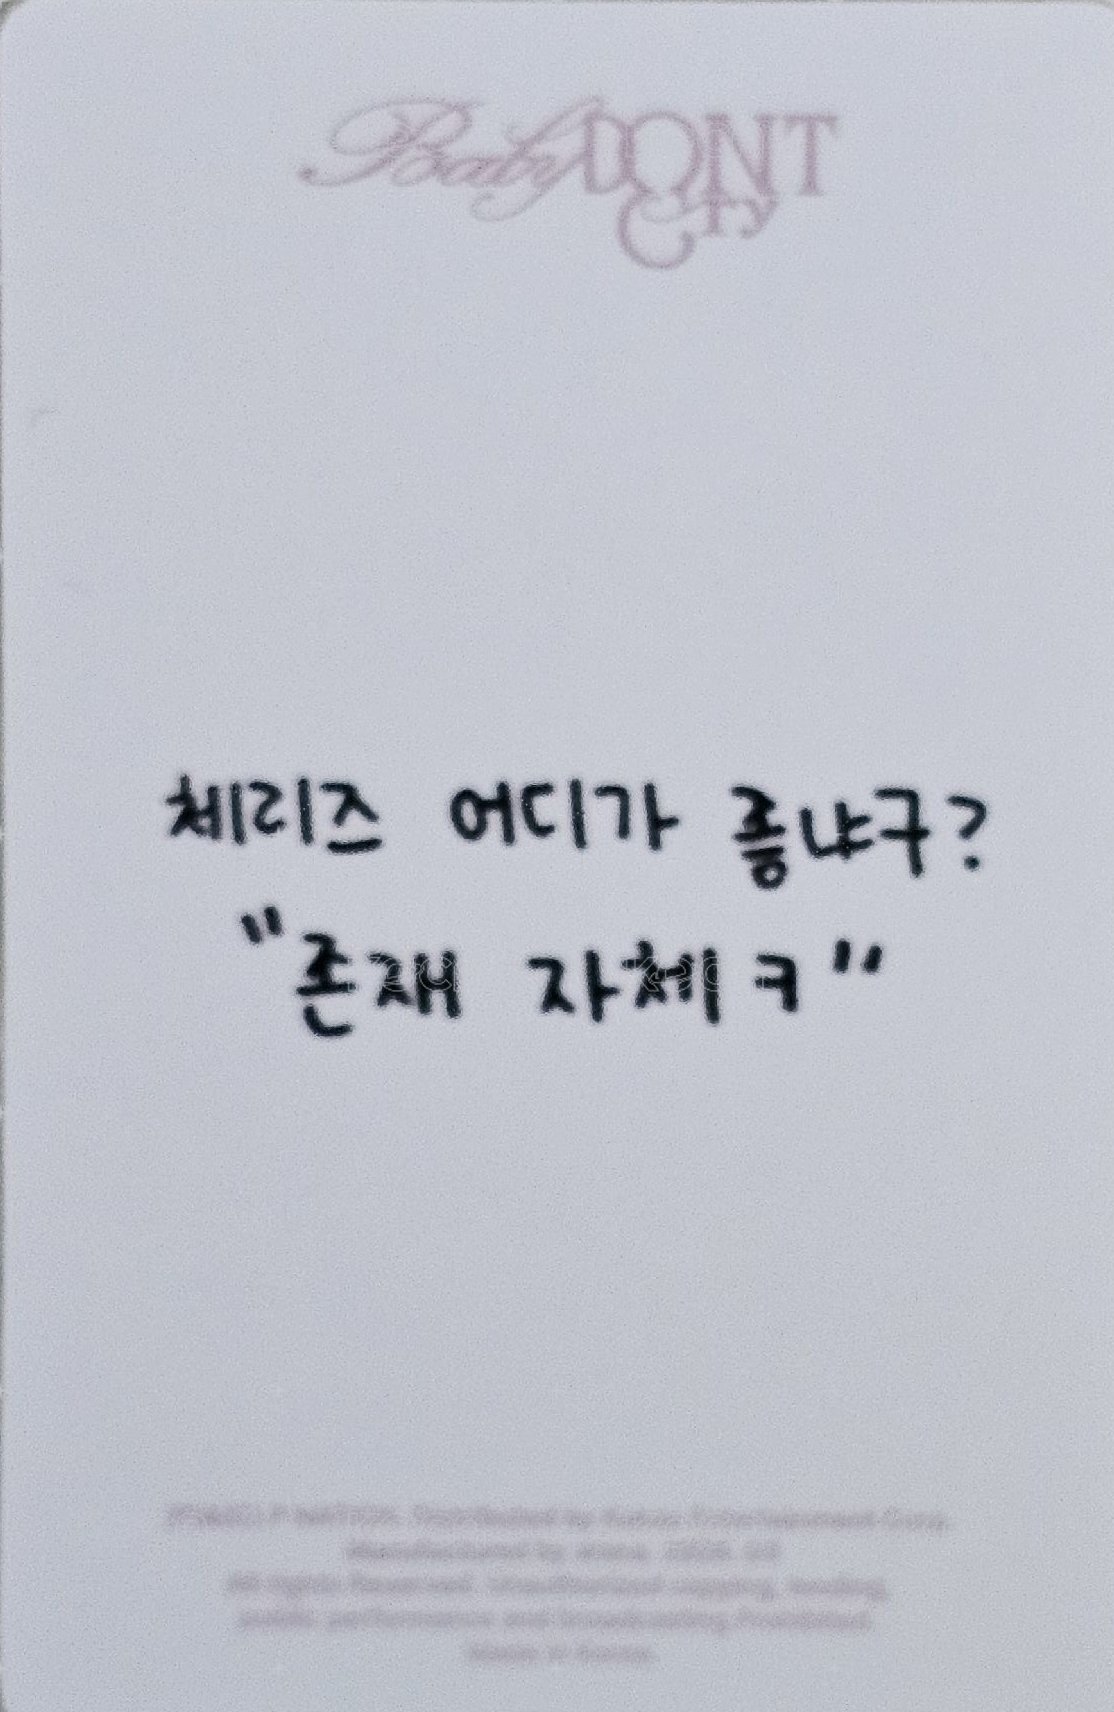 Baby DONT Cry
체리즈 어디가 좋냐구?
"존재 자체ㅋ"
P NATION. Distributed by Kakao Entertainment Corp.
All rights Reserved. Unauthorized copying, lending,
public performance and broadcasting Prohibited.
Made in Korea.